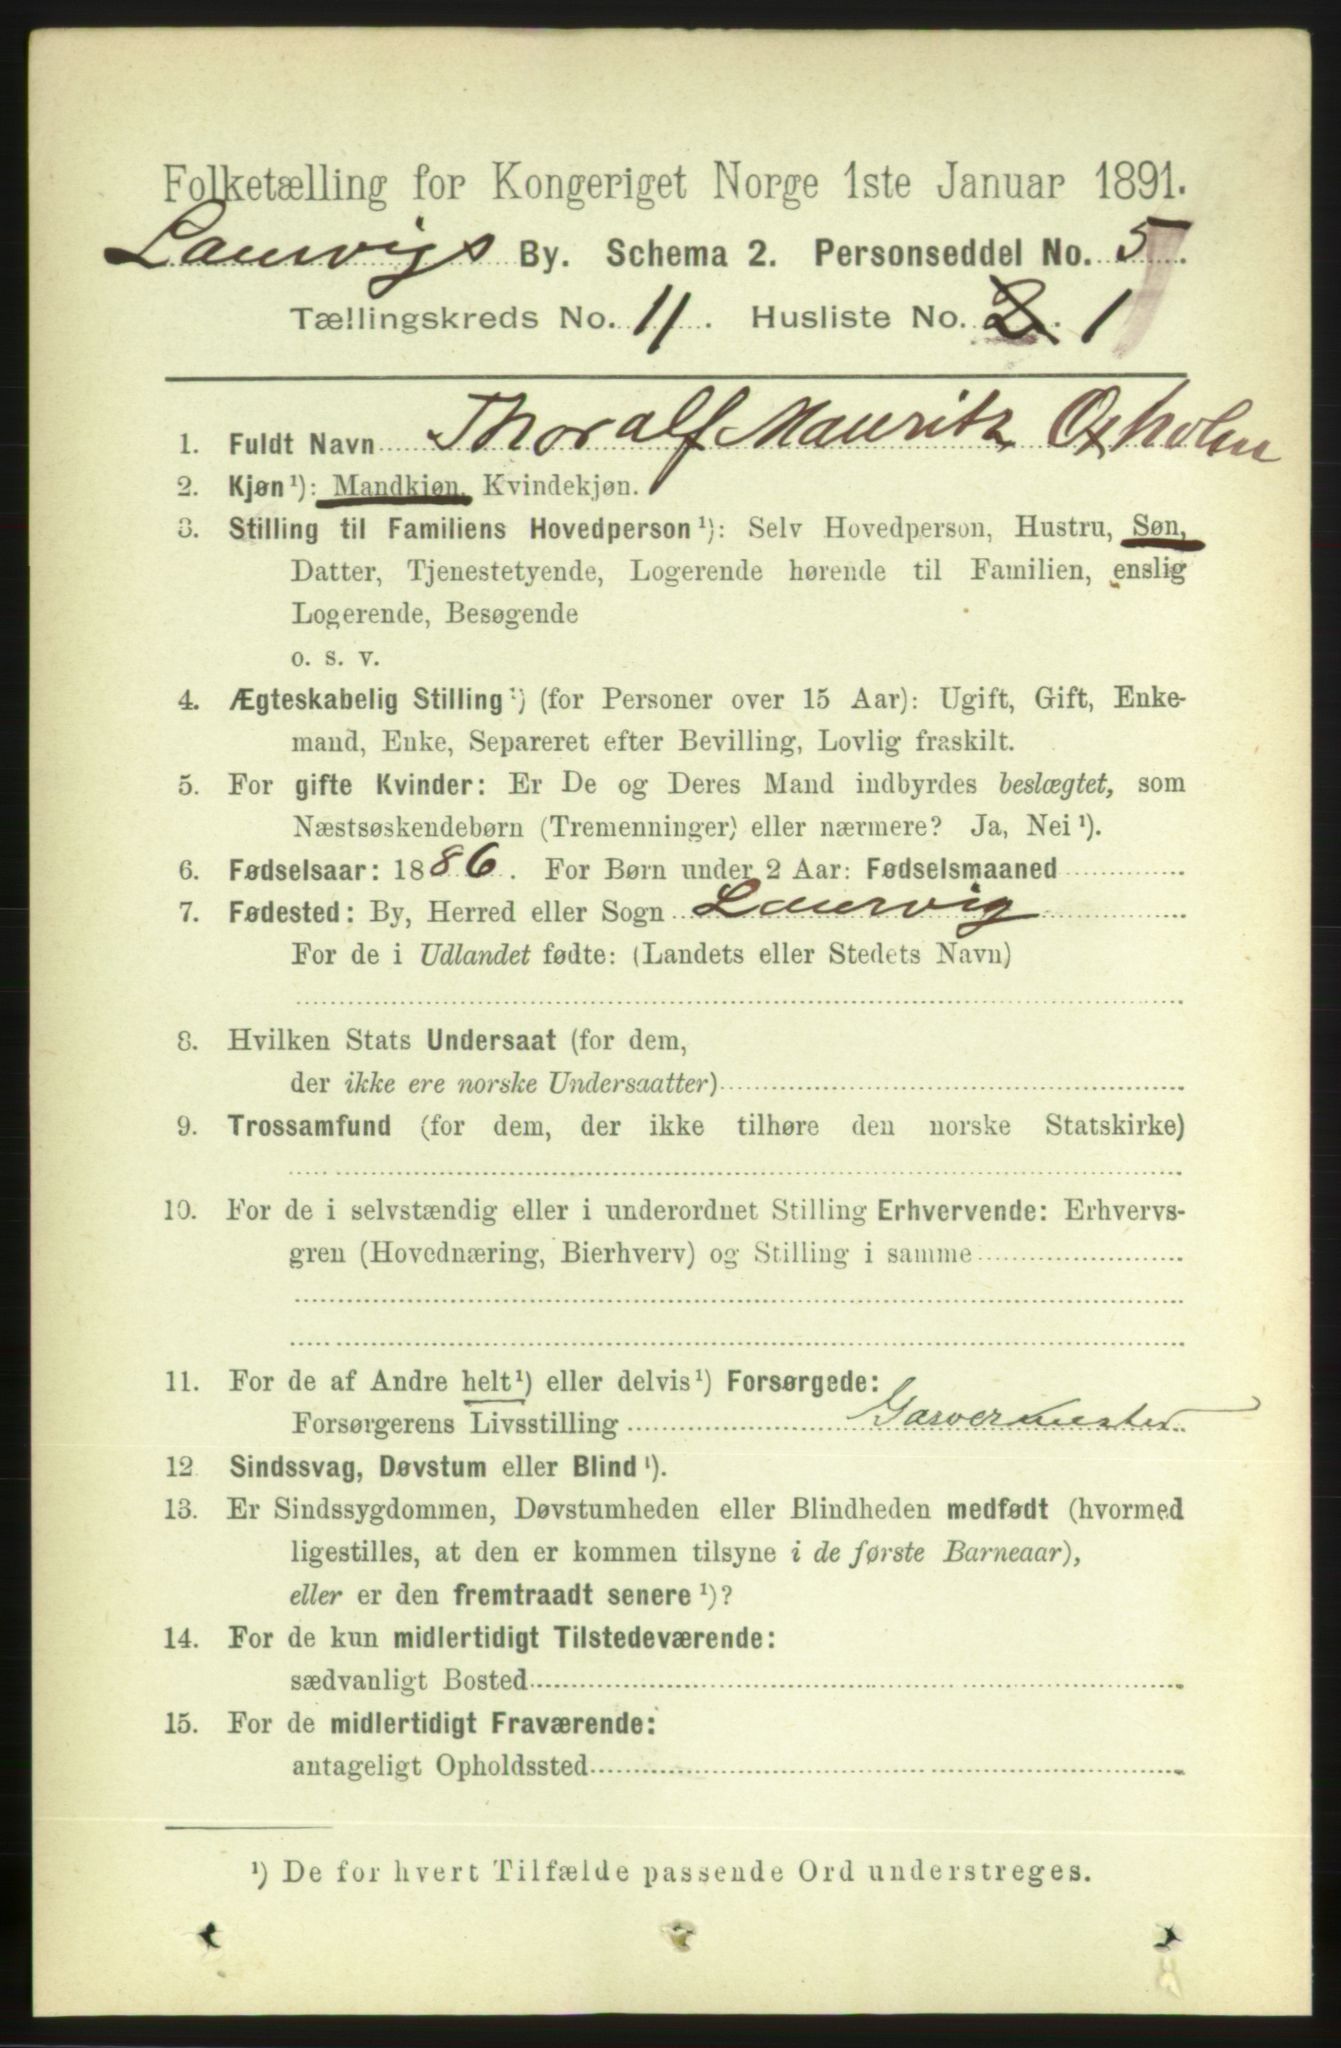 Folketælling for Kongeriget Norge 1ste Januar 1891.
Laurvigs By. Schema 2. Personseddel No. 5.
Tællingskreds No. 11. Husliste No. 2. 1
1. Fuldt Navn Thoralf Mauritz Oxholm
2. Kjøn¹): Mandkjøn, Kvindekjøn.
3. Stilling til Familiens Hovedperson¹): Selv Hovedperson, Hustru, Søn,
Datter, Tjenestetyende, Logerende hørende til Familien, enslig
Logerende, Besøgende
o. s. v.
4. Ægteskabelig Stilling¹) (for Personer over 15 Aar): Ugift, Gift, Enke-
mand, Enke, Separeret efter Bevilling, Lovlig fraskilt.
5. For gifte Kvinder: Er De og Deres Mand indbyrdes beslægtet, som
Næstsøskendebørn (Tremenninger) eller nærmere? Ja, Nei¹).
6. Fødselsaar: 1886. For Børn under 2 Aar: Fødselsmaaned
7. Fødested: By, Herred eller Sogn Laurvig
For de i Udlandet fødte: (Landets eller Stedets Navn)
8. Hvilken Stats Undersaat (for dem,
der ikke ere norske Undersaatter)
9. Trossamfund (for dem, der ikke tilhøre den norske Statskirke)
10. For de i selvstændig eller i underordnet Stilling Erhvervende: Erhvervs-
gren (Hovednæring, Bierhverv) og Stilling i samme
11. For de af Andre helt¹) eller delvis¹) Forsørgede:
Forsørgerens Livsstilling Garvermester
12 Sindssvag, Døvstum eller Blind¹).
13. Er Sindssygdommen, Døvstumheden eller Blindheden medfødt (hvormed
ligestilles, at den er kommen tilsyne i de første Barneaar),
eller er den fremtraadt senere¹)?
14. For de kun midlertidigt Tilstedeværende:
sædvanligt Bosted
15. For de midlertidigt Fraværende:
antageligt Opholdssted
¹) De for hvert Tilfælde passende Ord understreges.